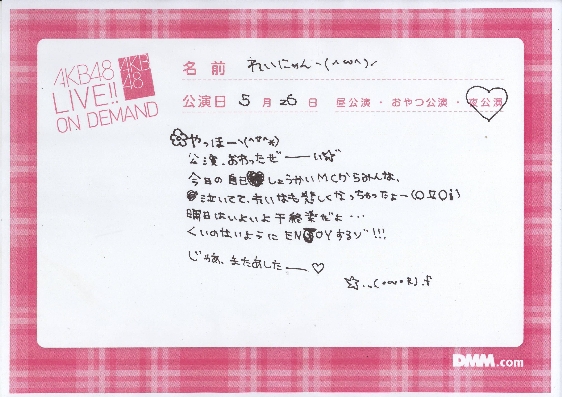 AKB48
LIVE!!
ON DEMAND
AKB
48
名前 れいにゃんヽ(^ω^)ノ
公演日 5月26日 昼公演・おやつ公演・夜公演
やっほーヽ(^∀^*)
公演、おわったぜーーい☆
今日の自己しょうかいMCからみんな、
泣いてて、れいなも悲しくなっちゃったょー(O△Oi)
明日はいよいよ千終楽だよ・・・
くいのないようにENJOYするゾ!!!
じゃあ、またあしたーー♡
DMM.com